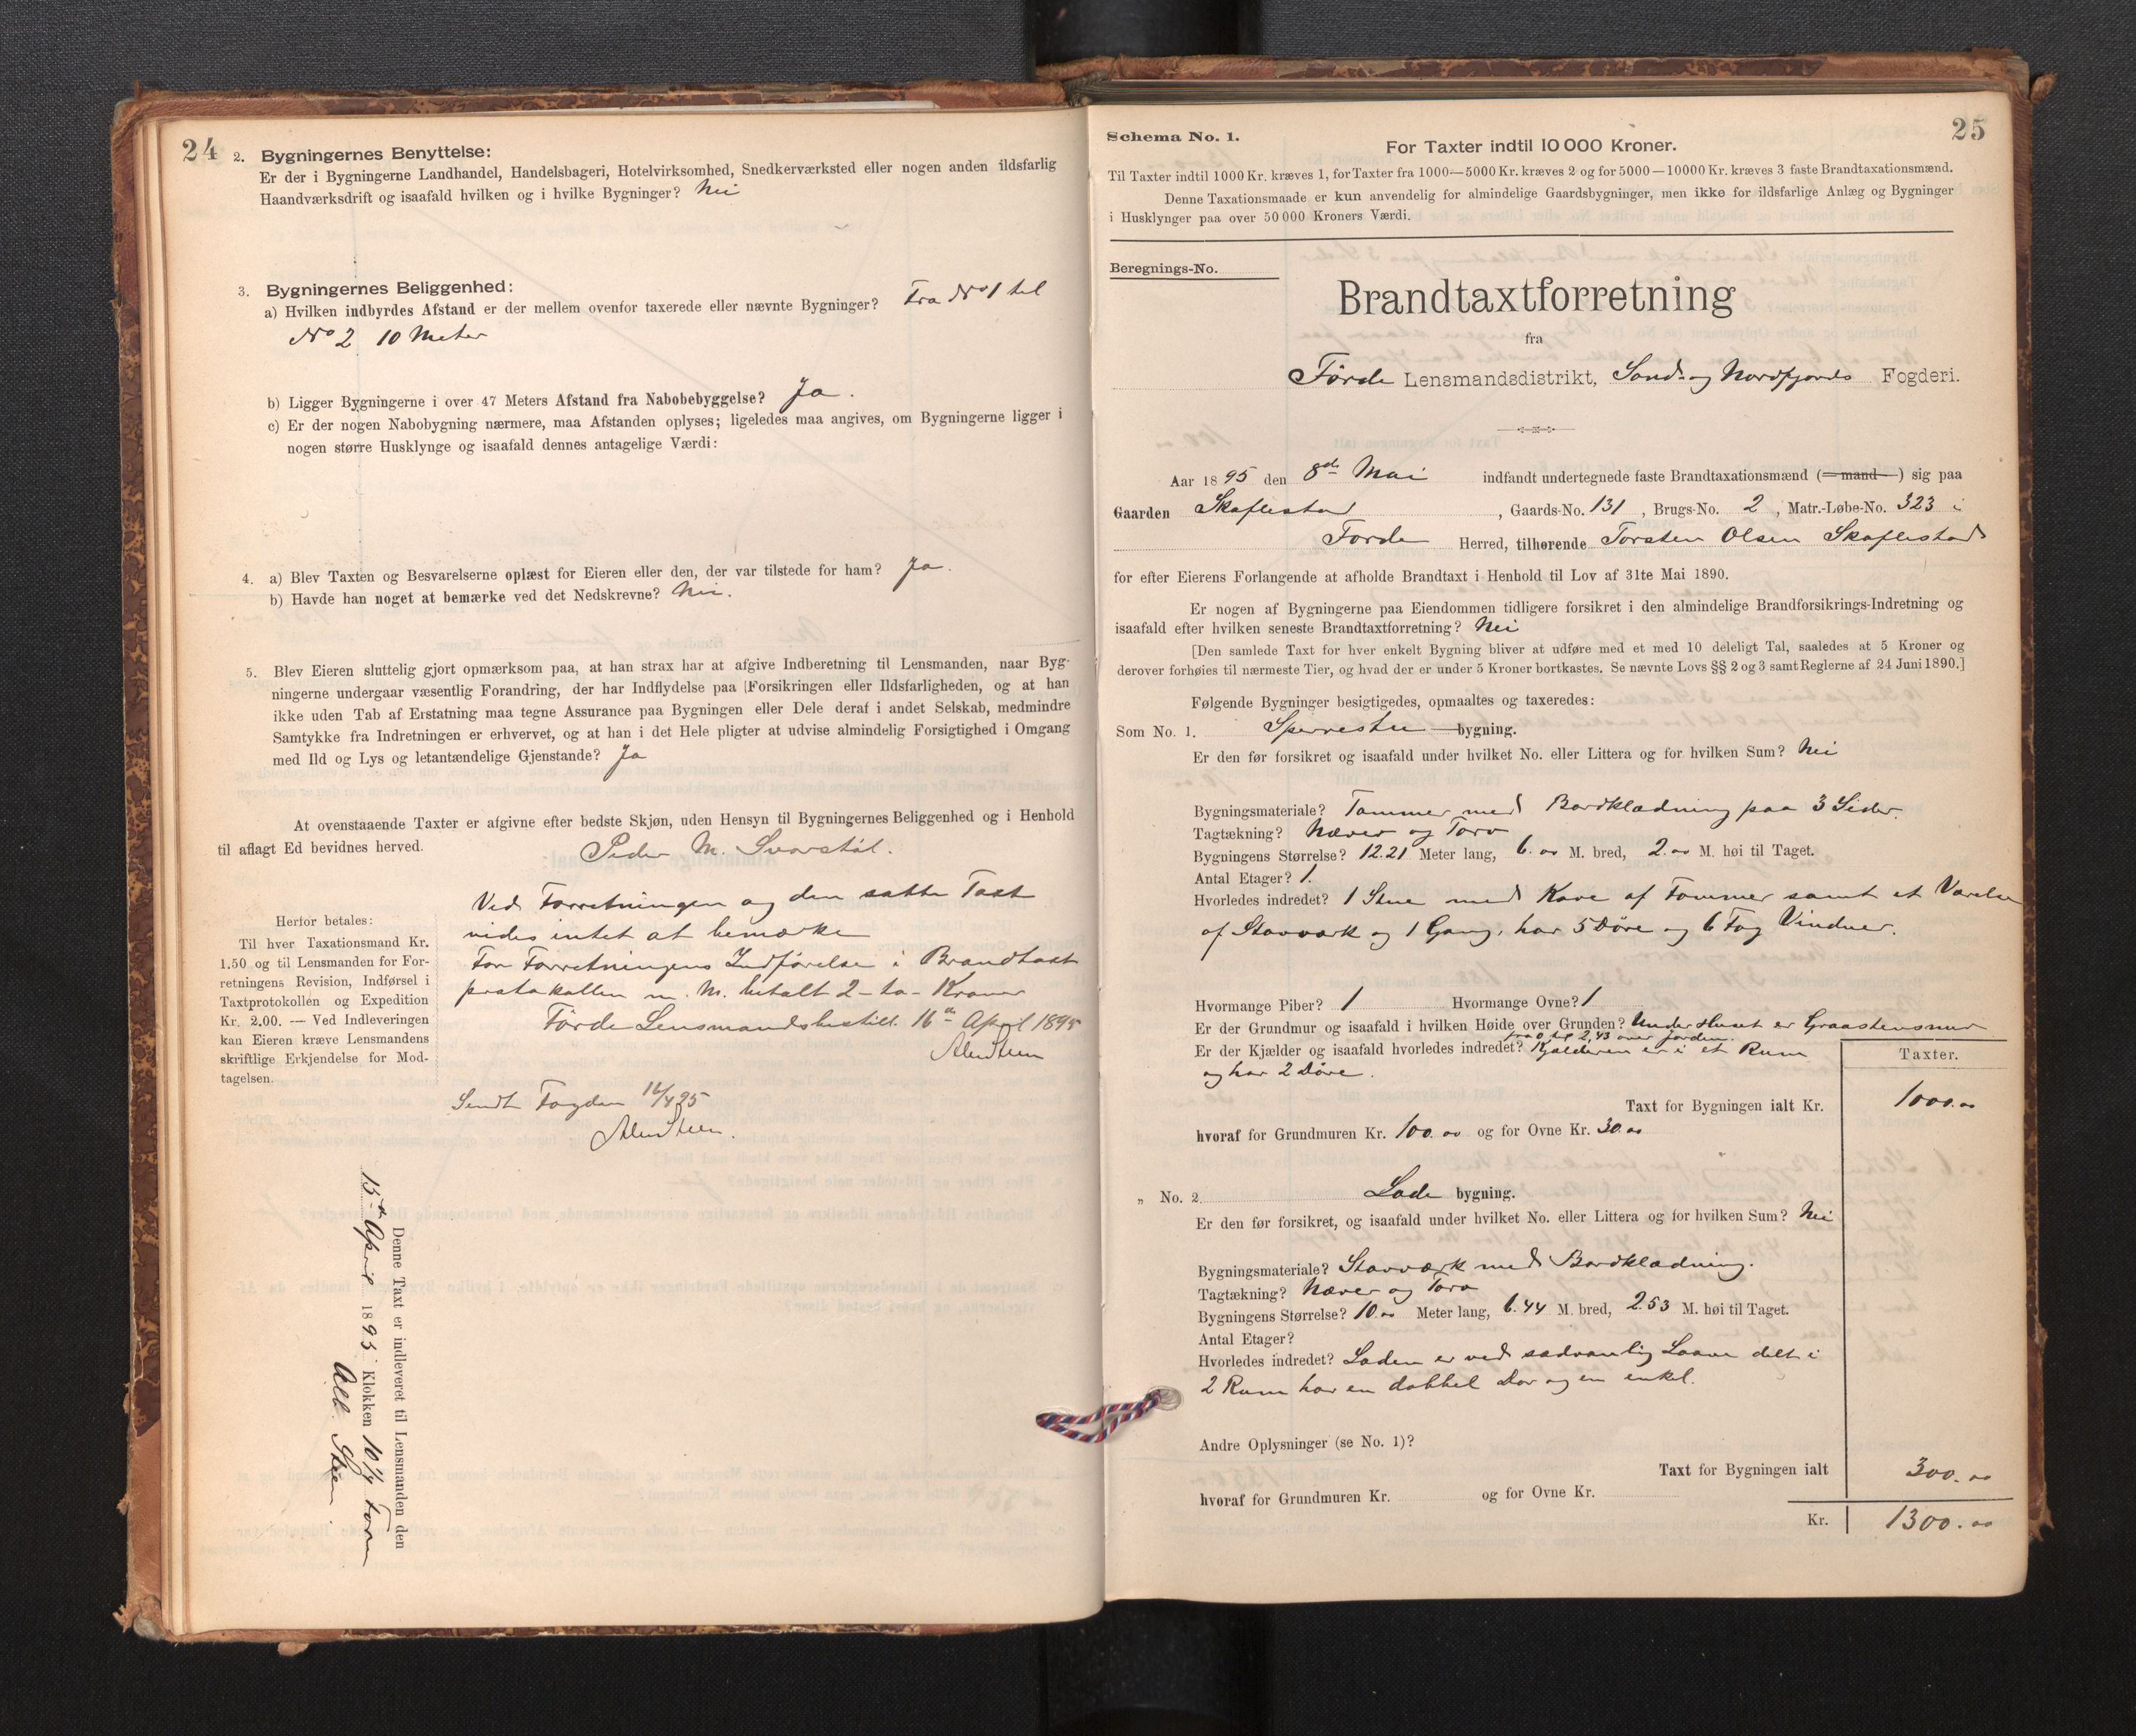 24
2. Bygningernes Benyttelse:
Er der i Bygningerne Landhandel, Handelsbageri, Hotelvirksomhed, Snedkerværksted eller nogen anden ildsfarlig
Haandværksdrift og isaafald hvilken og i hvilke Bygninger? Nei
3. Bygningernes Beliggenhed:
a) Hvilken indbyrdes Afstand er der mellem ovenfor taxerede eller nævnte Bygninger? Fra No 1 til
No 2 10 Meter
b) Ligger Bygningerne i over 47 Meters Afstand fra Nabobebyggelse? Ja.
c) Er der nogen Nabobygning nærmere, maa Afstanden oplyses; ligeledes maa angives, om Bygningerne ligger i
nogen større Husklynge og isaafald dennes antagelige Værdi:
4. a) Blev Taxten og Besvarelserne oplæst for Eieren eller den, der var tilstede for ham? Ja.
b) Havde han noget at bemærke ved det Nedskrevne? Nei.
5. Blev Eieren sluttelig gjort opmærksom paa, at han strax har at afgive Indberetning til Lensmanden, naar Byg-
ningerne undergaar væsentlig Forandring, der har Indflydelse paa [Forsikringen eller Ildsfarligheden, og at han
ikke uden Tab af Erstatning maa tegne Assurance paa Bygningen eller Dele deraf i andet Selskab, medmindre
Samtykke fra Indretningen er erhvervet, og at han i det Hele pligter at udvise almindelig Forsigtighed i Omgang
med Ild og Lys og letantændelige Gjenstande? Ja
At ovenstaaende Taxter er afgivne efter bedste Skjøn, uden Hensyn til Bygningernes Beliggenhed og i Henhold
til aflagt Ed bevidnes herved. Peder M. Svarstøl.
Ved Forretningen og den satte Taxt
vides intet at bemærke
For Forretningens Indførelse i Brandtaxt
protokollen m. M. betalt 2 - to - Kroner
Förde Lensmandsbestill. 16de April 1895
Sendt Fogden 16/4 95
Herfor betales:
Til hver Taxationsmand Kr.
1.50 og til Lensmanden for For-
retningens Revision, Indførsel i
Taxtprotokollen og Expedition
Kr. 2.00. — Ved Indleveringen
kan Eieren kræve Lensmandens
skriftlige Erkjendelse for Mod-
tagelsen.
Denne Taxt er indleveret til Lensmanden den
15de April 1895 Klokken 10 1/4 Form
Alb. Steen
25
Schema No. 1.
For Taxter indtil 10 000 Kroner.
Til Taxter indtil 1000 Kr. kræves 1, for Taxter fra 1000—5000 Kr. kræves 2 og for 5000—10000 Kr. kræves 3 faste Brandtaxationsmænd.
Denne Taxationsmaade er kun anvendelig for almindelige Gaardsbygninger, men ikke for ildsfarlige Anlæg og Bygninger
i Husklynger paa over 50 000 Kroners Værdi.
Beregnings-No.
Brandtaxtforretning
fra
Förde Lensmandsdistrikt, Sønd- og Nordfjords Fogderi.
Aar 1895 den 8de Mai indfandt undertegnede faste Brandtaxationsmænd (—mand—) sig paa
Gaarden Skaflestad, Gaards-No. 131, Brugs-No. 2, Matr.-Løbe-No. 323 i
Förde Herred, tilhørende Torsten Olsen Skaflestad
for efter Eierens Forlangende at afholde Brandtaxt i Henhold til Lov af 31te Mai 1890.
Er nogen af Bygningerne paa Eiendommen tidligere forsikret i den almindelige Brandforsikrings-Indretning og
isaafald efter hvilken seneste Brandtaxtforretning? Nei
[Den samlede Taxt for hver enkelt Bygning bliver at udføre med et med 10 deleligt Tal, saaledes at 5 Kroner og
derover forhøies til nærmeste Tier, og hvad der er under 5 Kroner bortkastes. Se nævnte Lovs §§ 2 og 3 samt Reglerne af 24 Juni 1890.]
Følgende Bygninger besigtigedes, opmaaltes og taxeredes:
Som No. 1. Sperrestu bygning.
Er den før forsikret og isaafald under hvilket No. eller Littera og for hvilken Sum? Nei
Bygningsmateriale? Tømmer med Bordklædning paa 3 Sider.
Tagtækning? Næver og Torv
Bygningens Størrelse? 12.21 Meter lang, 6.00 M. bred, 2.00 M. høi til Taget.
Antal Etager? 1.
Hvorledes indredet? 1 Stue med Kove af Tømmer samt et Værelse
af Stavværk og 1 Gang, har 5 Døre og 6 Fag Vinduer.
Hvormange Piber? 1 Hvormange Ovne? 1
Er der Grundmur og isaafald i hvilken Høide over Grunden? Under Huset er Graastensmur
fra 0 til 2,43 over Jorden.
Er der Kjælder og isaafald hvorledes indredet? Kjælderen er i et Rum
og har 2 Døre.
Taxter.
Taxt for Bygningen ialt Kr. 1000.00
hvoraf for Grundmuren Kr. 100.00 og for Ovne Kr. 30.00
„ No. 2 Lade bygning.
Er den før forsikret, og isaafald under hvilket No. eller Littera og for hvilken Sum? Nei
Bygningsmateriale? Stavværk med Bordklædning.
Tagtækning? Næver og Torv
Bygningens Størrelse? 10.00 Meter lang, 6.44 M. bred, 2.53 M. høi til Taget.
Antal Etager?
Hvorledes indredet? Laden er ved sædvanlig Laave delt i
2 Rum har en dobbel Dør og en enkel.
Andre Oplysninger (se No. 1)?
Taxt for Bygningen ialt 300.00
hvoraf for Grundmuren Kr. og for Ovne Kr.
Kr. 1300.00